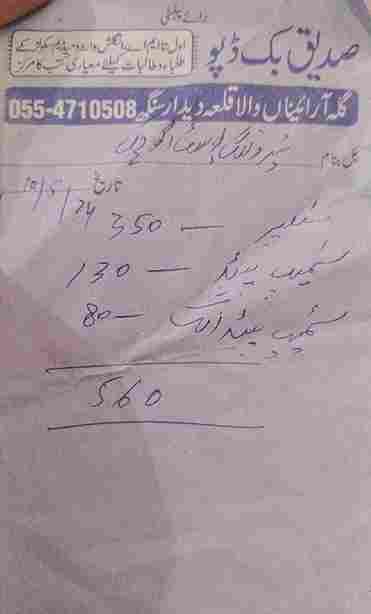 برائے پبلسٹی
صدیق بک ڈپو
اول تا ایم اے انگلش و اردو میڈیم سکولز کے
طلباء و طالبات کیلئے معیاری کتب کا مرکز
گلہ آرائیاں والا قلعہ دیدار سنگھ 055-4710508
بل بنام
تاریخ 24/5/
350 —
سٹیمپ پیڈ — 130
سٹیمپ پیڈ — 80
560